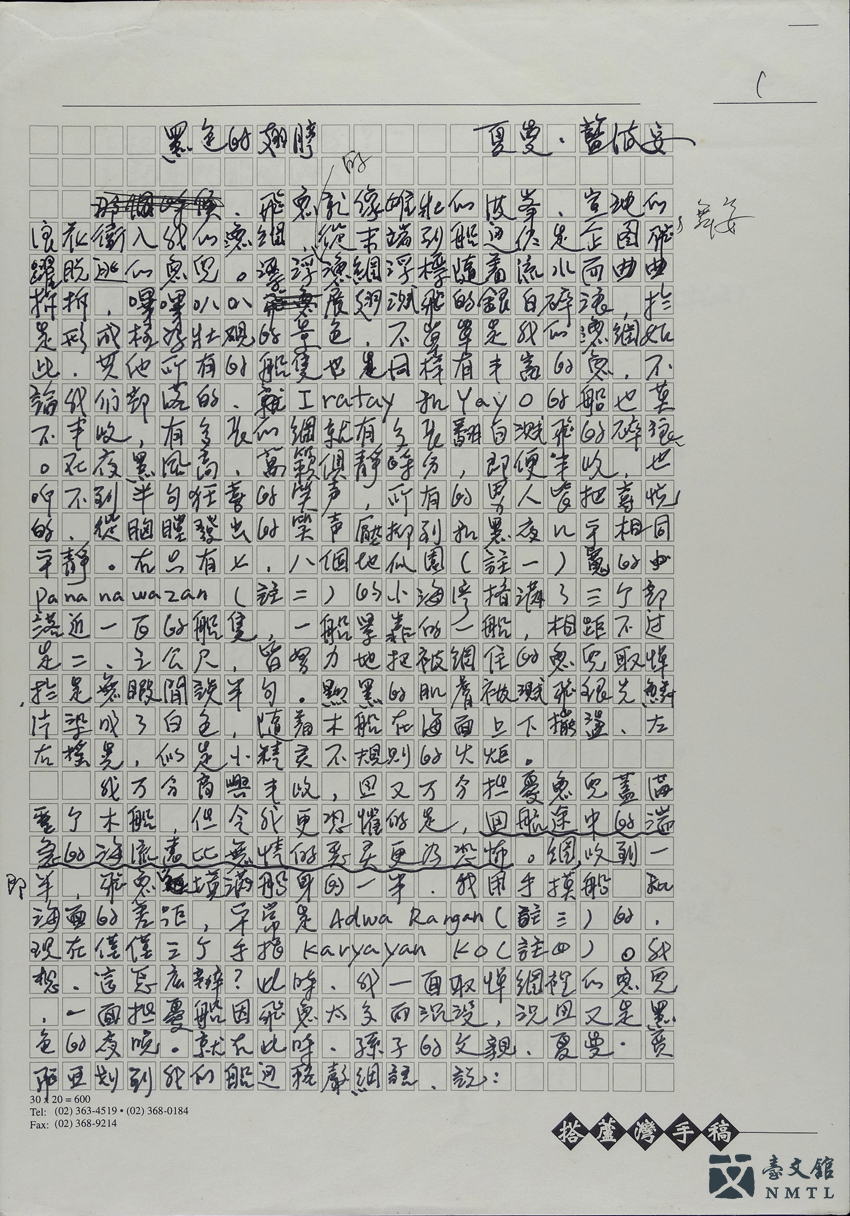 黑色的翅膀　夏曼．藍波安
的
飛魚就像雄壯的波峯、
浪花衝入我的漁網，從末端到船邊
躍脫逃的魚兒。漂浮漁網浮標隨著流水而曲曲
拆拆，嗶嗶叭叭展翅濺飛的銀白碎浪，於
是形成極為壯硯的景色，不單單是我的漁網如
此．其他所有的船隻也是同樣有丰富的魚，不
論我們部落的、就Iratay和Yayo的船也莫
不丰收，有多張的網就有多張翻白濺飛的碎浪
。在夜黑風高、萬籟俱靜時分，即便丰收，也
叩不到半句狂喜的笑声，所有的男人皆把喜悅
的、從胸膛發出的笑声壓抑到和黑夜以乎相同
平靜。在只有七，八個地似園（註一）寬的
Pananawazan（註二）的小海灣擠滿了三个部
落近一百的船隻，一船緊靠的一船，相距不过
是二、三公尺，皆努力地把被網住的魚兒取悼
於是無暇閒說半句。黝黑的肌膚被濺飛銀光鱗
片染成了白色，隨著木船在海面上下擺盪、左
右搖晃，似是小精灵不規則的火炬。
我万分高興丰收，但又万分担憂魚兒蓋滿
整个木船，但令我更恐懼的是，回航途中的湍
急的海流遠比無情的惡灵更為恐怖。網收到一
半，飛魚填滿船身的一半．我用手摸船和
海面的差距，平常是Adwa Rangan（註三）的．
現在僅僅三个手指Karyayan Ko（註四）。我
想．這怎広辦？此時．我一面取悼網裡的魚兒
，一面担憂船因飛魚太多而沉沒，況且又是黑
色的夜晚。就在此時．孫子的父親．夏曼．賈
飛亞划到我的船边 說：
30 x 20 = 600
Tel: (02) 363-4519 • (02) 368-0184
Fax: (02) 368-9214
搭蘆灣手稿
臺文館
NMTL